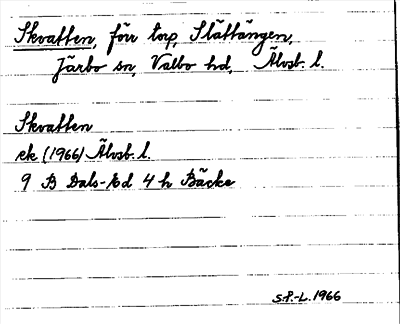 Skvatten, förr torp, Slättängen,
Järbo sn, Valbo hd, Älvsb. l.
Skvatten
ek (1966) Älvsb. l.
9 B Dals-Ed 4 h Bäcke
S.P.-L. 1966